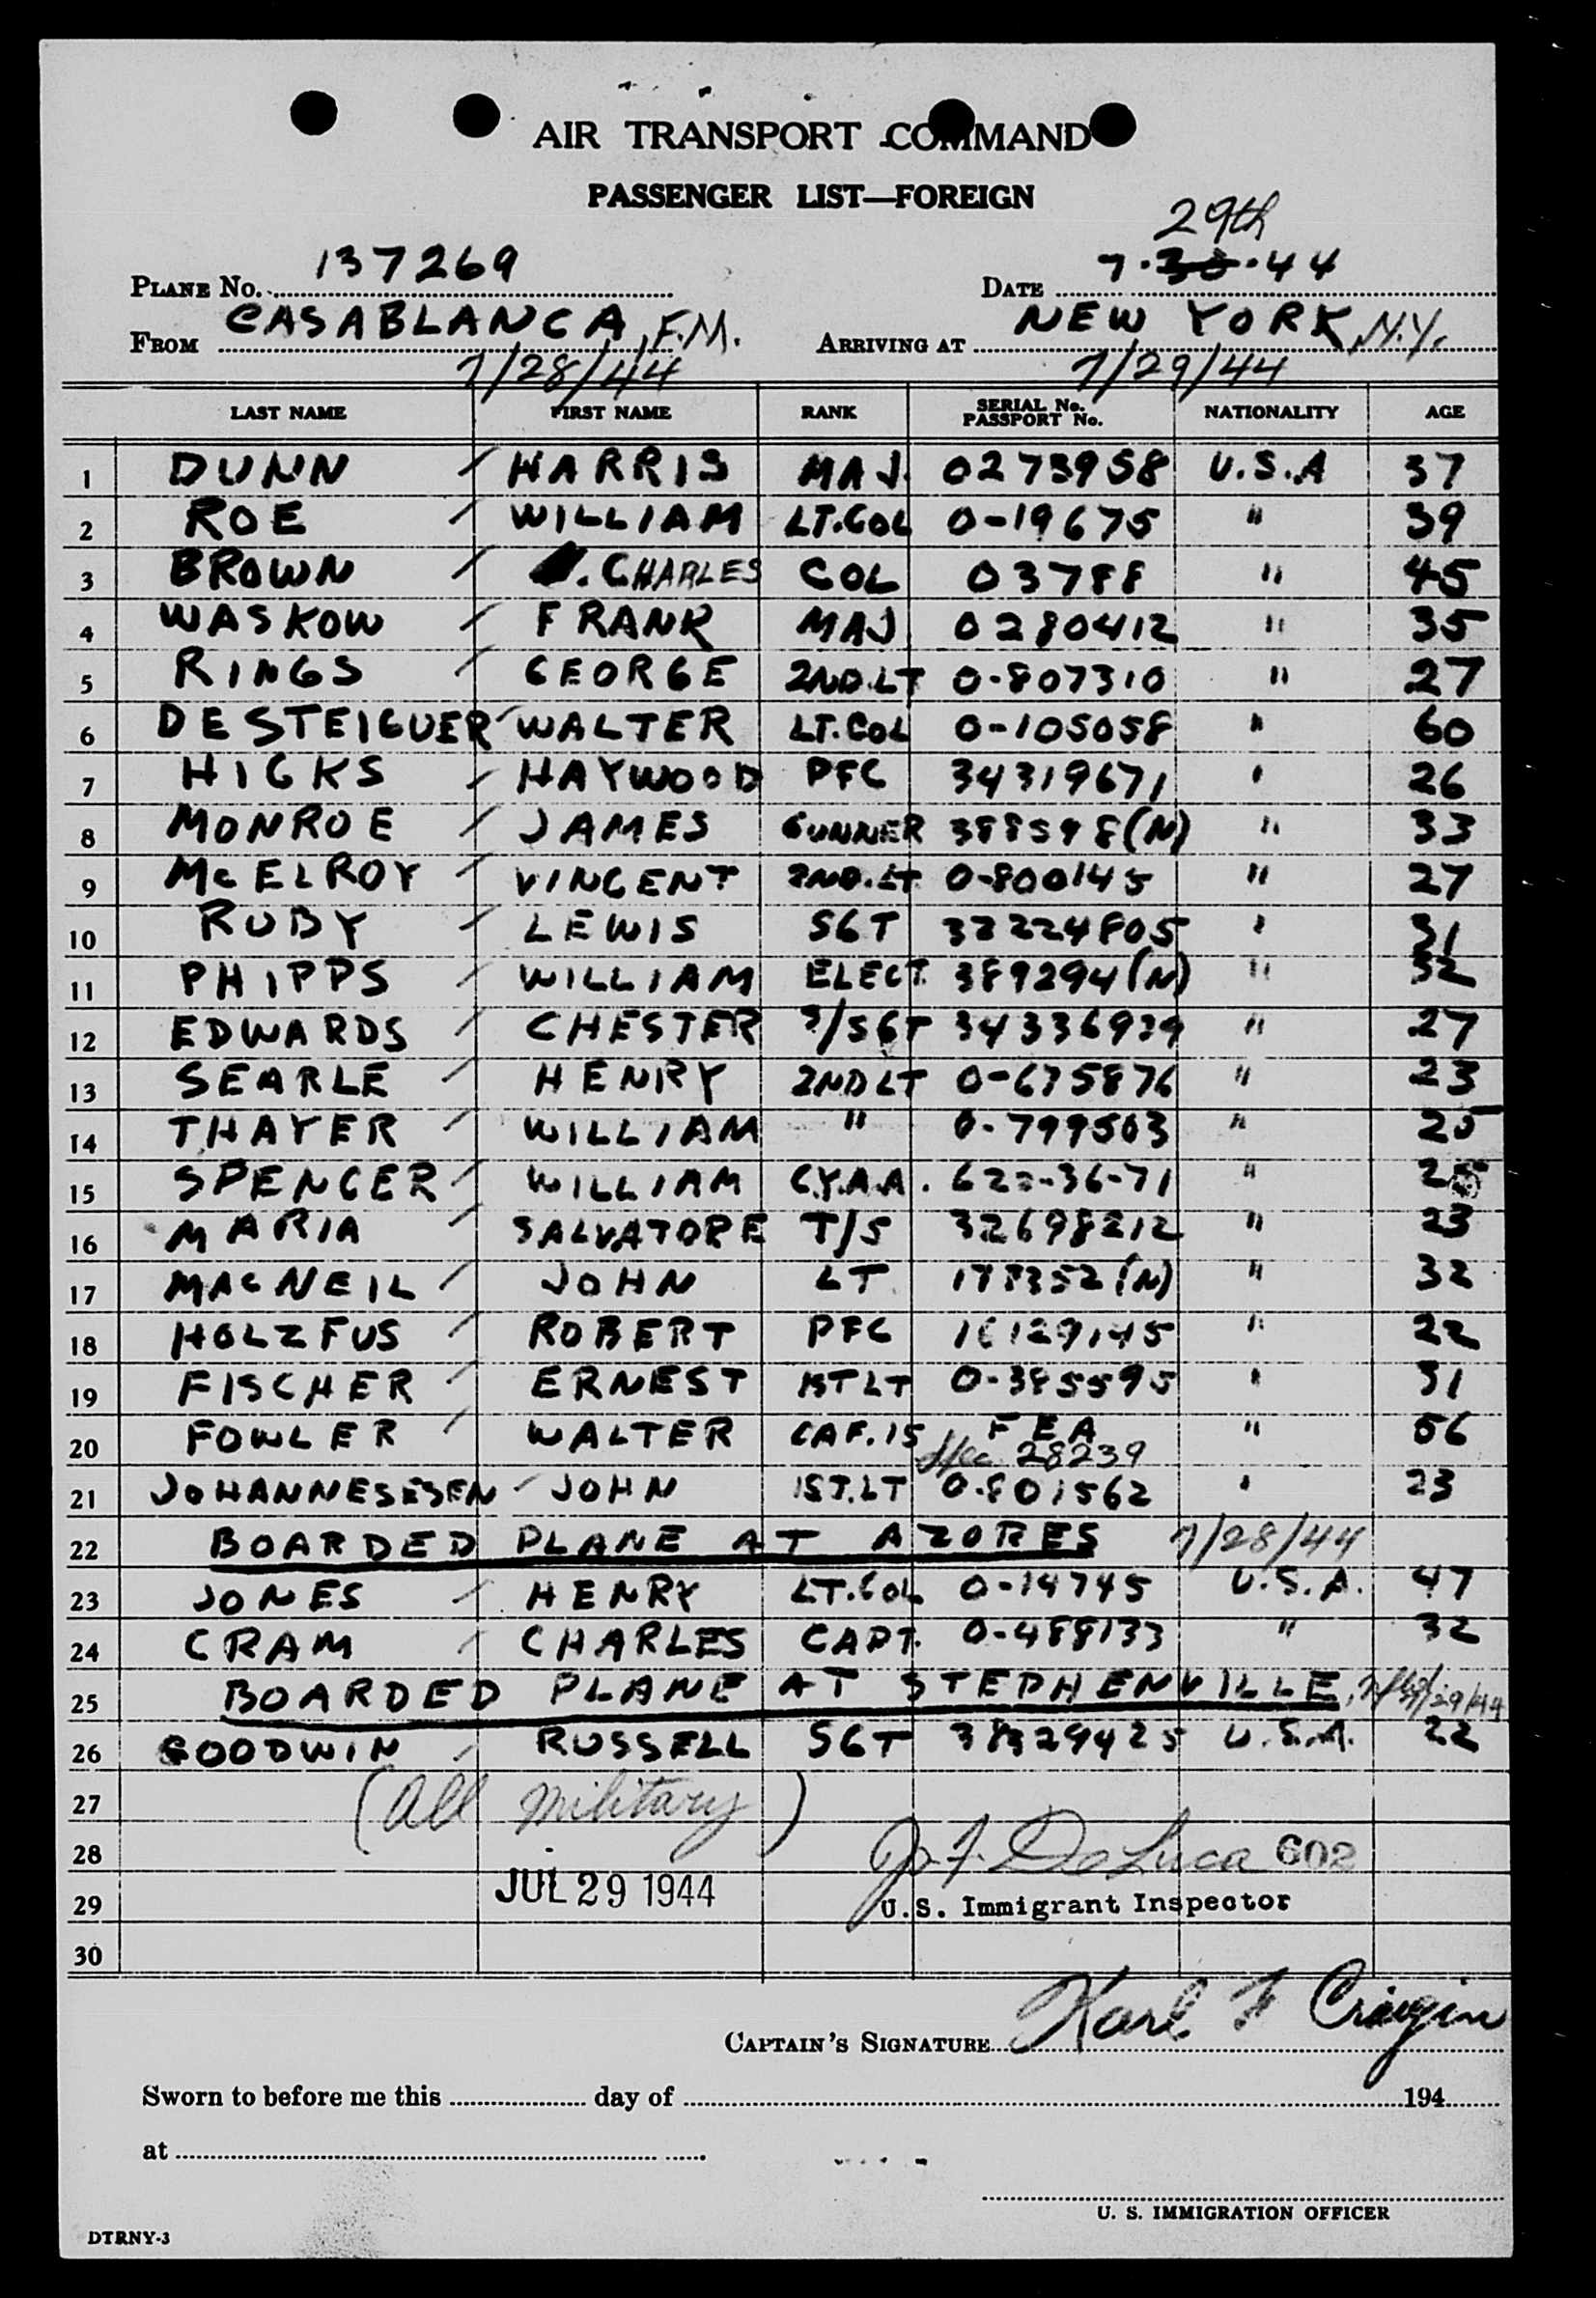 AIR TRANSPORT COMMAND
PASSENGER LIST—FOREIGN
29th
PLANE No. 137269 DATE 7·30·44
FROM CASABLANCA, F.M. ARRIVING AT NEW YORK N.Y.
7/28/44 7/29/44
LAST NAME FIRST NAME RANK SERIAL No. PASSPORT No. NATIONALITY AGE
1 DUNN / HARRIS MAJ. 0273958 U.S.A 37
2 ROE / WILLIAM LT.COL 0-19675 " 39
3 BROWN / . CHARLES COL 03788 " 45
4 WASKOW / FRANK MAJ 0280412 " 35
5 RINGS / GEORGE 2ND.LT 0-807310 " 27
6 DESTEIGUER / WALTER LT.COL 0-105058 " 60
7 HICKS / HAYWOOD PFC 34319671 " 26
8 MONROE / JAMES GUNNER 388598(N) " 33
9 McELROY / VINCENT 2ND.LT 0-800145 " 27
10 RUBY / LEWIS SGT 32224805 " 31
11 PHIPPS / WILLIAM ELECT. 389294(N) " 32
12 EDWARDS / CHESTER S/SGT 34336929 " 27
13 SEARLE / HENRY 2ND LT 0-675876 " 23
14 THAYER / WILLIAM " 0-799503 " 25
15 SPENCER / WILLIAM C.Y.A.A. 622-36-71 "
16 MARIA / SALVATORE T/5 32698212 " 23
17 MACNEIL / JOHN LT. 178352(N) " 32
18 HOLZFUS / ROBERT PFC 16129145 " 22
19 FISCHER / ERNEST 1ST LT 0-385595 " 31
20 FOWLER / WALTER CAF.15 FEA " 56
28239
21 JOHANNESESEN / JOHN 1ST.LT 0-801562 " 23
22 BOARDED PLANE AT AZORES 7/28/44
23 JONES / HENRY LT.COL 0-14745 U.S.A. 47
24 CRAM / CHARLES CAPT. 0-488133 " 32
25 BOARDED PLANE AT STEPHENVILLE, 7/29/44
26 GOODWIN / RUSSELL SGT 38329425 U.S.A. 22
27 (All military)
28 J. F. DeLuca 602
29 JUL 29 1944 U.S. Immigrant Inspector
30
CAPTAIN'S SIGNATURE Karl F
Sworn to before me this day of 194
at
U. S. IMMIGRATION OFFICER
DTRNY-3